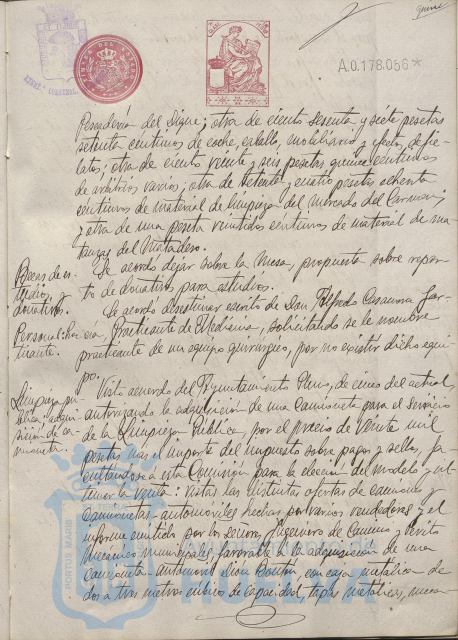 A.0.178.056*
Pescadería del Dique; otra de ciento sesenta y siete pesetas
setenta céntimos de coche, caballo, mobiliario y efectos, defie-
latos; otra de ciento veinte y seis pesetas quince céntimos
de arbitrios varios; otra de setenta y cuatro pesetas ochenta
céntimos de material de limpieza del mercado del Carmen;
y otra de una peseta veintidos céntimos de material de ma-
tanzas del Matadero.
Becas de es-
tudios, y
donativos.
Se acordó dejar sobre la Mesa, propuesta sobre repar-
to de donativos para estudios.
Personal:
Practicante.
Se acordó desestimar escrito de Don Alfredo Casanova Gar-
cía, Practicante de Medicina, solicitando se le nombre
practicante de un equipo quirúrgico, por no existir dicho equi-
po.
Limpieza pú-
blica, adqui-
sición de ca-
mioneta.
Visto acuerdo del Ayuntamiento Pleno, de cinco del actual,
autorizando la adquisición de una camioneta para el servicio
de la Limpieza Pública, por el precio de veinte mil
pesetas mas el importe del impuesto sobre pagos y sellos, fa-
cultándose a esta Comisión para la elección del modelo y ul-
timar la venta: vistas las distintas ofertas de camiones y
camionetas automóviles hechas por varios vendedores y el
informe emitido por los señores Ingeniero de Caminos y Perito
Mecánico municipales, favorable a la adquisición de una
camioneta-automóvil Dion Bouton, con caja metálica de
dos a tres metros cúbicos de capacidad, tapas metálicas, meca-